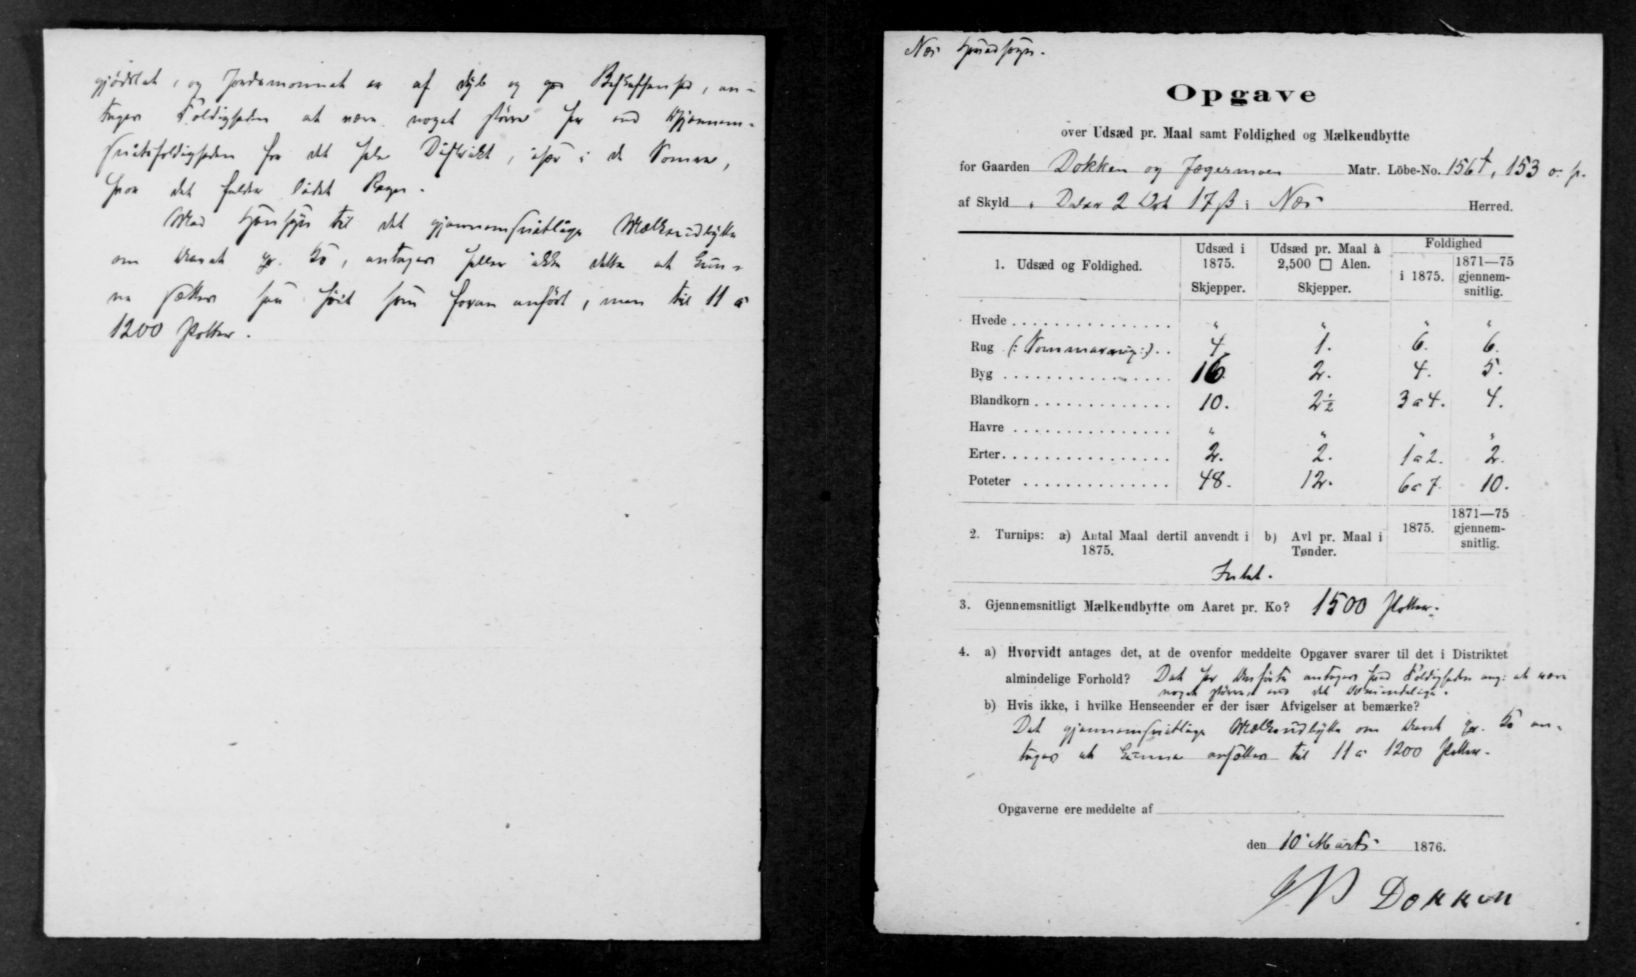 gjødslet, og Jordsmonnet er af dyb og god Beskaffenhed, an-
tages Foldigheden at være noget større her end Gjennem-
snitsfoldigheden for det hele Distrikt, især i de Somre,
hvor det falder lidet Regn.
Med Hensyn til det gjennemsnitlige Mælkeudbytte
om Aaret pr. Ko, antages heller ikke dette at kun-
ne sættes saa høit som foran anført, men til 11 à
1200 Potter.
Næs Hovedsogn.
Opgave
over Udsæd pr. Maal samt Foldighed og Mælkeudbytte
for Gaarden Dokken og Jægermoen Matr. Löbe-No. 156 f, 153 o. p.
af Skyld Daler 2 Ort 17 ß i Næs Herred.
1. Udsæd og Foldighed. Udsæd i 1875. Skjepper. Udsæd pr. Maal à 2,500 □ Alen. Skjepper. Foldighed i 1875. 1871—75 gjennem-snitlig.
Hvede " " " "
Rug (: Sommerrug :) 4 1. 6. 6.
Byg 16 2. 4. 5.
Blandkorn 10. 2½ 3 à 4. 4.
Havre " " " "
Erter 2. 2. 1 à 2. 2.
Poteter 48. 12. 6 à 7. 10.
2. Turnips: a) Antal Maal dertil anvendt i 1875. b) Avl pr. Maal i Tønder. 1875. 1871—75 gjennem-snitlig.
Intet.
3. Gjennemsnitligt Mælkeudbytte om Aaret pr. Ko? 1500 Potter.
4. a) Hvorvidt antages det, at de ovenfor meddelte Opgaver svarer til det i Distriktet
almindelige Forhold? Det her Anførte antages hvad Foldigheden ang: at være
noget større end det Almindelige.
b) Hvis ikke, i hvilke Henseender er der især Afvigelser at bemærke?
Det gjennemsnitlige Mælkeudbytte om Aaret pr. Ko an-
tages at kunne ansættes til 11 à 1200 Potter.
Opgaverne ere meddelte af
den 10 Marts 1876.
Dokken